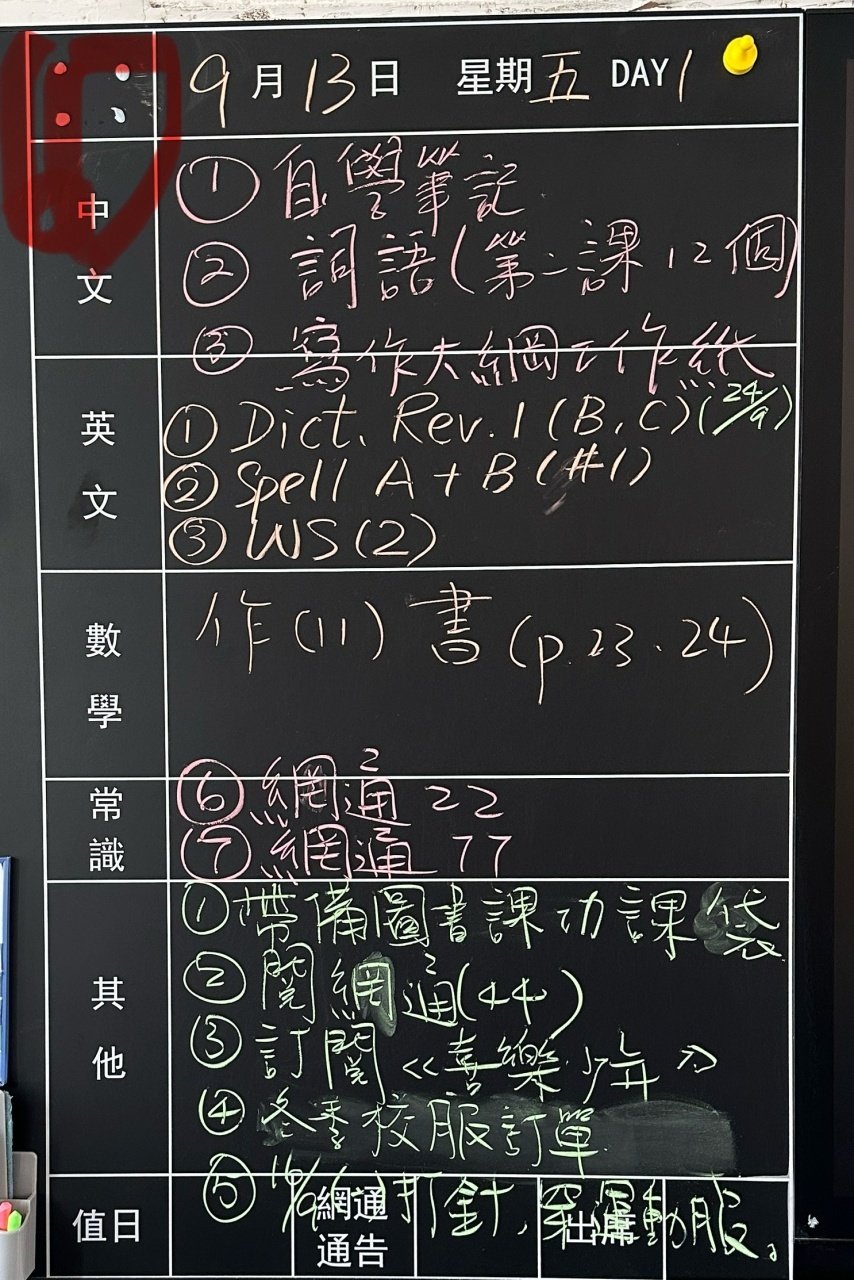 9月13日 星期五 DAY 1
中文
① 自學筆記
② 詞語(第二課12個)
③ 寫作大綱工作紙
英文
① Dict. Rev. 1 (B, C) (24/9)
② Spell A + B (#1)
③ WS (2)
數學
作(11) 書(p.23.24)
常識
⑥ 網通 22
⑦ 網通 77
其他
① 帶備圖書課功課袋
② 閱網通(44)
③ 訂閱《喜樂少年》
④ 冬季校服訂單
⑤ 16/9 打針,穿運動服。
值日 網通通告 出席